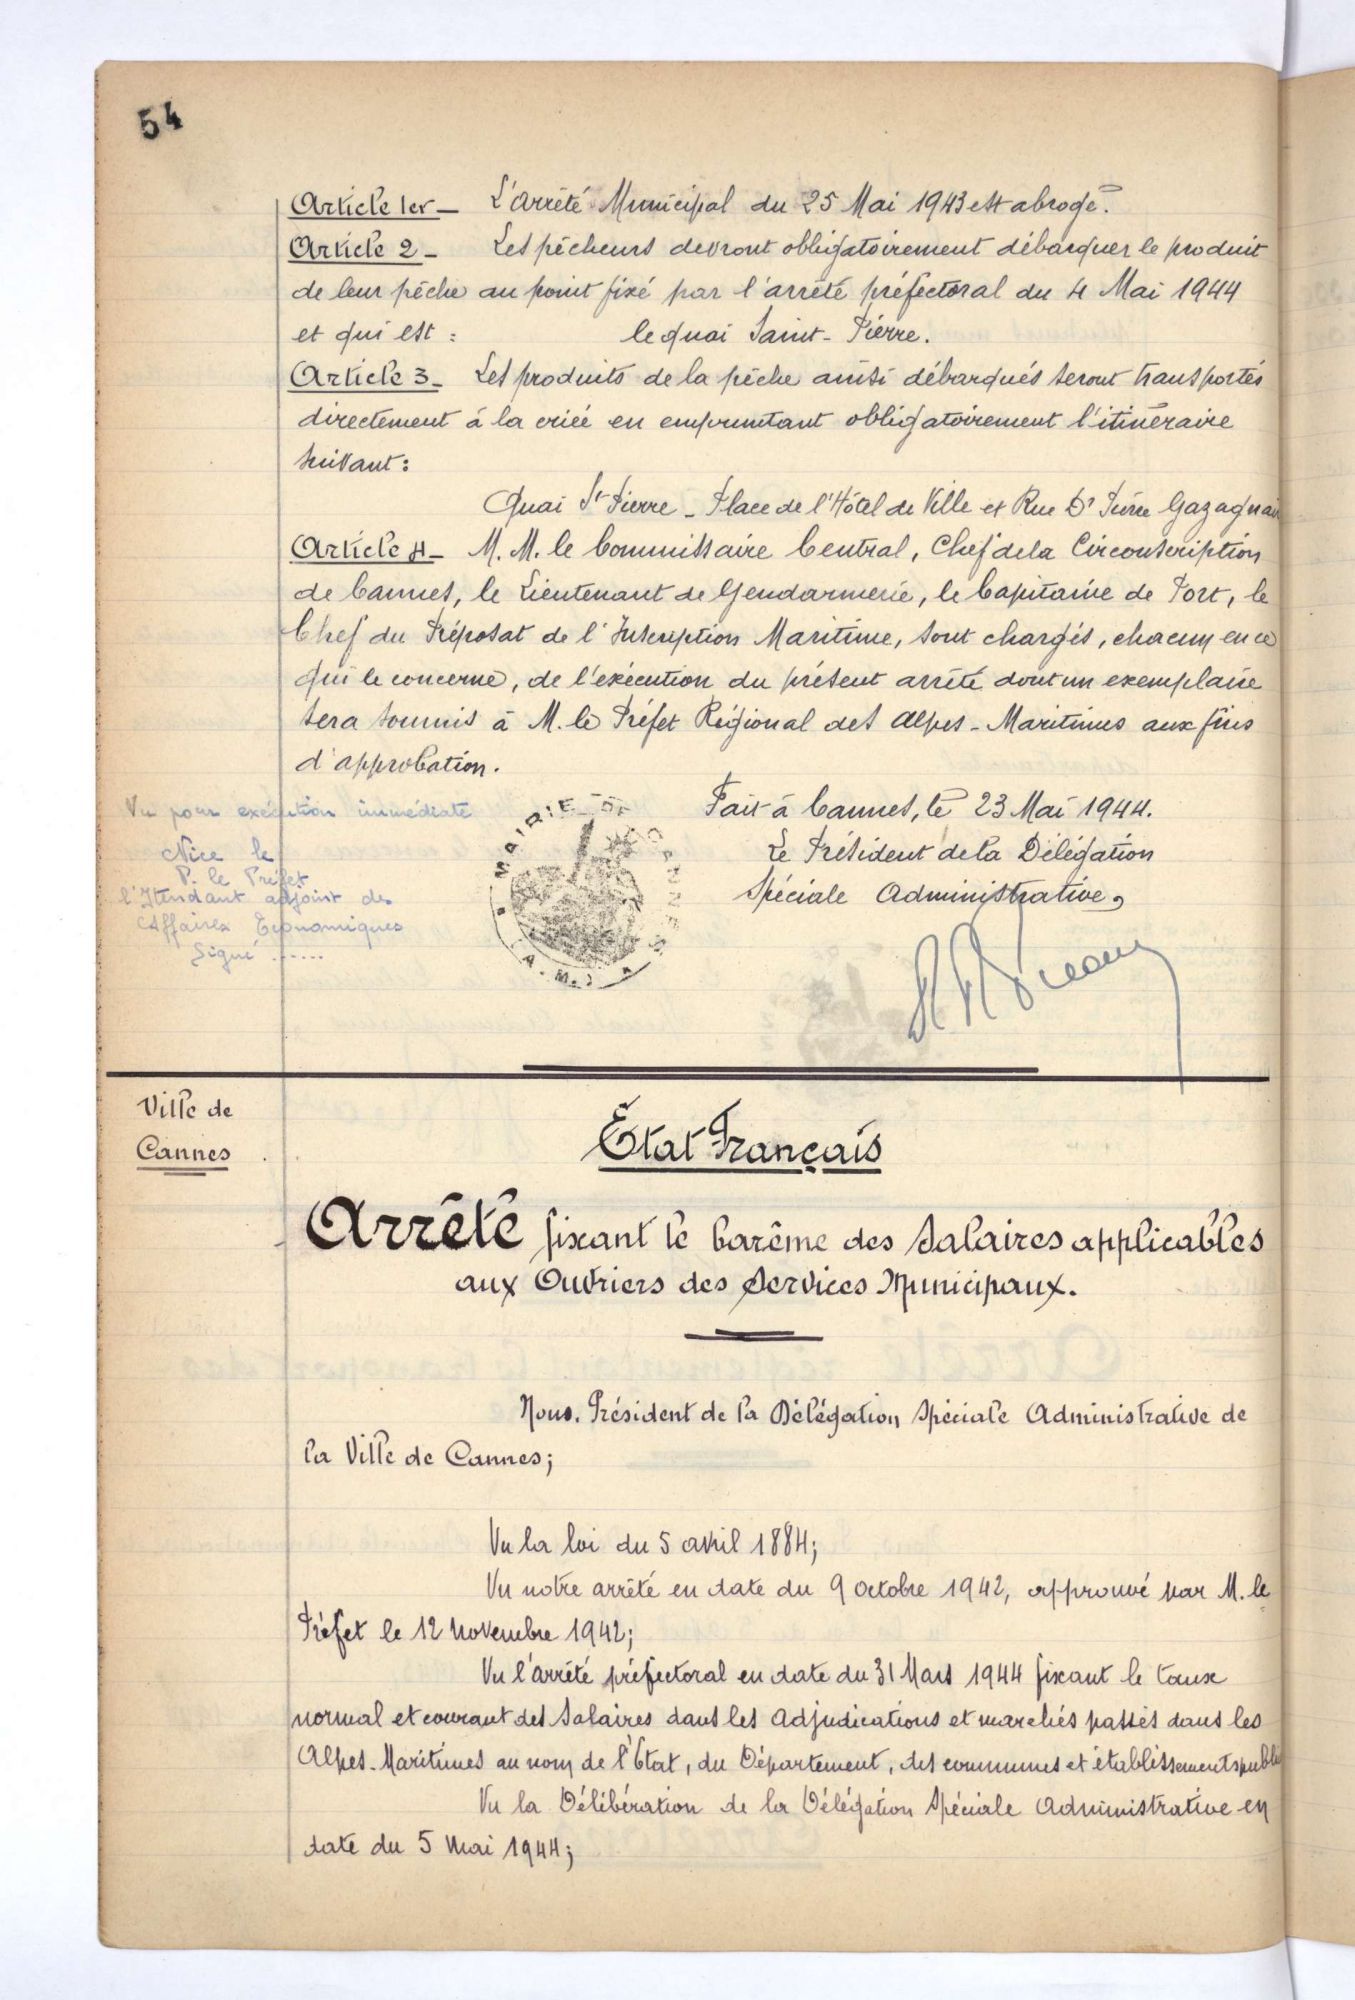 54
Article 1er - L'Arrêté Municipal du 25 Mai 1943 est abrogé.
Article 2 - Les pêcheurs devront obligatoirement débarquer le produit
de leur pêche au point fixé par l'arrêté préfectoral du 4 Mai 1944
et qui est : le quai Saint-Pierre.
Article 3 - Les produits de la pêche ainsi débarqués seront transportés
directement à la criée en empruntant obligatoirement l'itinéraire
suivant :
Quai St Pierre - Place de l'Hôtel de Ville et Rue Dr Pierre Gazagnai
Article 4 - M.M. le Commissaire Central, Chef de la Circonscription
de Cannes, le Lieutenant de Gendarmerie, le Capitaine de Port, le
Chef du Préposat de l'Inscription Maritime, sont chargés, chacun en ce
qui le concerne, de l'exécution du présent arrêté dont un exemplaire
sera soumis à M. le Préfet Régional des Alpes-Maritimes aux fins
d'approbation.
Fait à Cannes, le 23 Mai 1944.
Le Président de la Délégation
Spéciale Administrative,
Vu pour exécution immédiate
Nice le
P. le Préfet
l'Itendant adjoint des
Affaires Economiques
Signé ......
MAIRIE DE CANNES
(A.M.)
Ville de
Cannes
Etat Français
Arrêté fixant le barême des Salaires applicables
aux Ouvriers des Services Municipaux.
Nous, Président de la Délégation Spéciale Administrative de
la Ville de Cannes;
Vu la loi du 5 avril 1884;
Vu notre arrêté en date du 9 octobre 1942, approuvé par M. le
Préfet le 12 Novembre 1942;
Vu l'arrêté préfectoral en date du 31 Mars 1944 fixant le taux
normal et courant des Salaires dans les Adjudications et marchés passés dans les
Alpes-Maritimes au nom de l'Etat, du Département, des communes et établissements publi
Vu la Délibération de la Délégation Spéciale Administrative en
date du 5 Mai 1944;